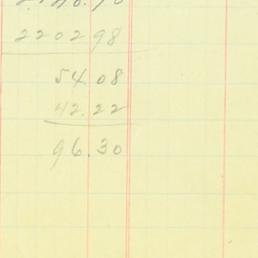 2202 98
54 08
42.22
96.30